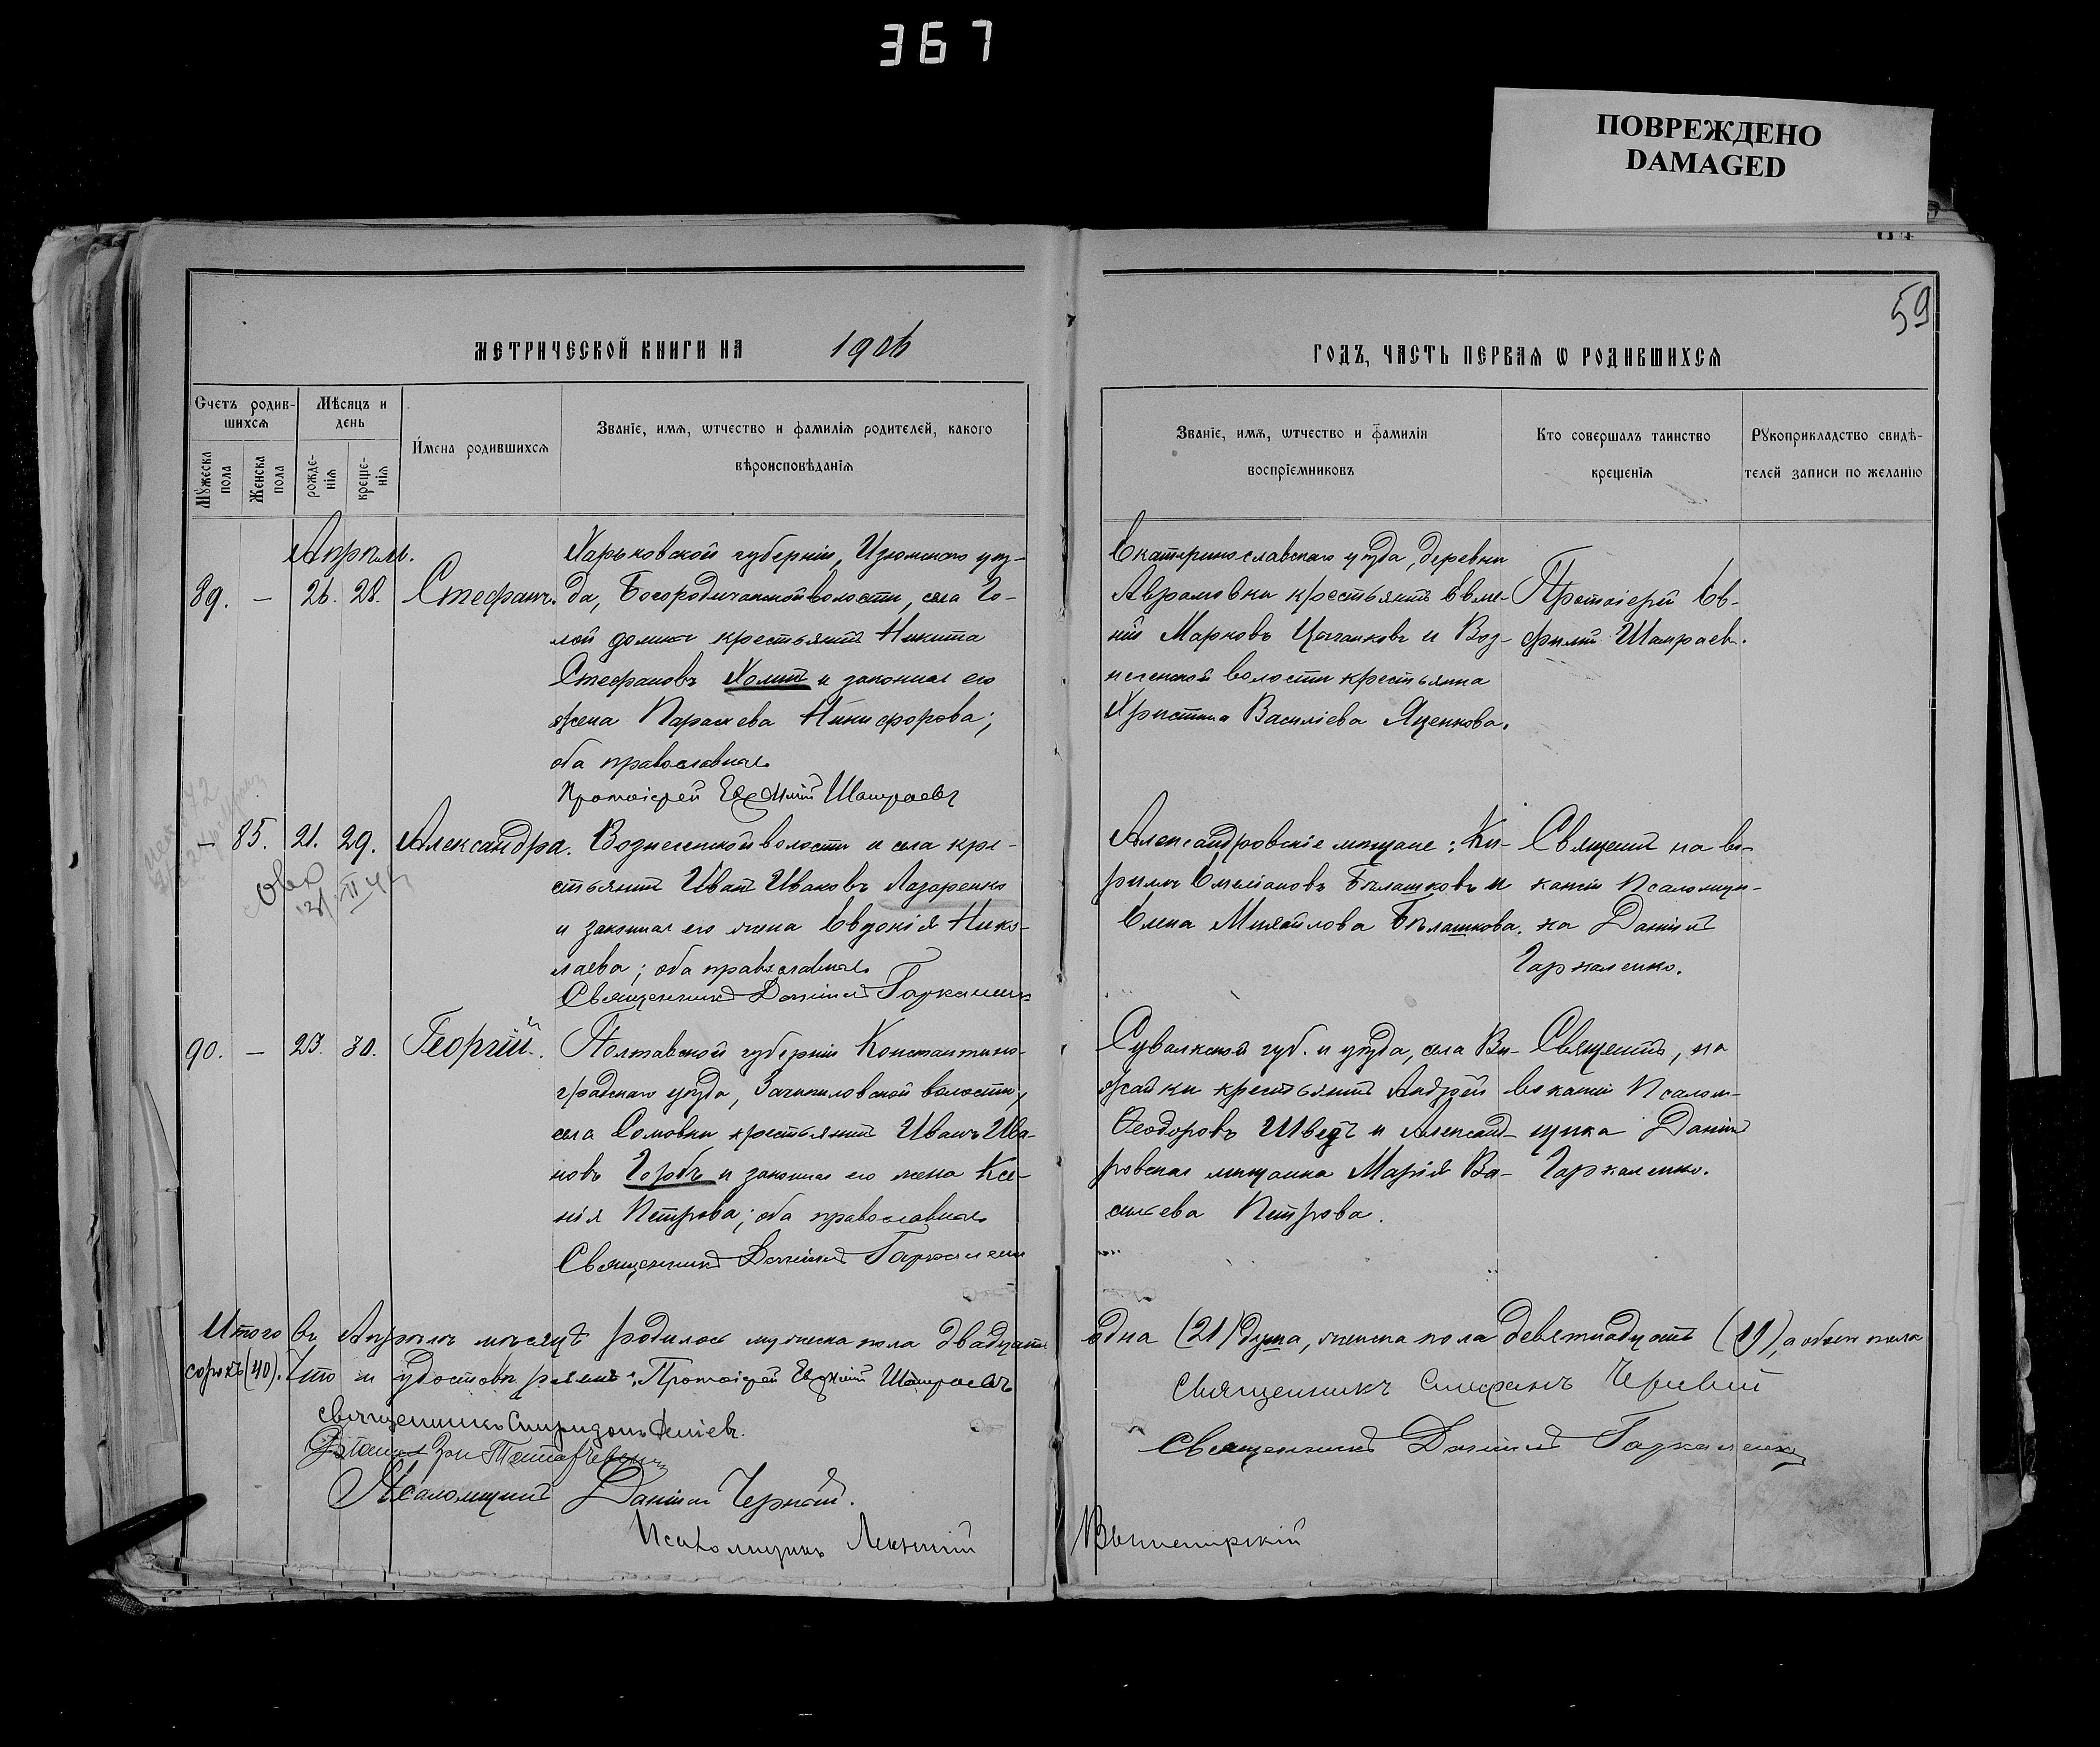 367
ПОВРЕЖДЕНО
DAMAGED
59
МЕТРИЧЕСКОЙ КНИГИ НА 1906
ГОДЪ, ЧАСТЬ ПЕРВАЯ Ѡ РОДИВШИХСЯ
Счетъ родив-
шихся
Мѣсяцъ и
день
Имена родившихся
Званіе, имя, ѿчество и фамилія родителей, какого
вѣроисповѣданія
Мужеска пола
Женска пола
рожде-
нія
креще-
нія
Званіе, имя, ѿчество и фамилія
воспріемниковъ
Кто совершалъ таинство
крещенія
Рукоприкладство свидѣ-
телей записи по желанію
Апрѣль.
89. — 26. 28. Стефанъ.
Харьковской губерніи, Изюмскаго уѣз-
да, Богородичанской волости, села Го-
лой долины крестьянинъ Никита
Стефановъ и законная его
жена Параскева Никифорова;
оба православные
Протоіерей Евфимій Шамраевъ
Екатеринославскаго уѣзда, деревни
Авраамовки крестьянинъ
Марковъ и Воз-
несенской волости крестьянка
Христина Василіева Яценкова.
Протоіерей Ев-
фимій Шамраевъ.
— 85. 21. 29. Александра.
Вознесенской волости и села кре-
стьянинъ Иванъ Ивановъ Лазаренко
и законная его жена Евдокія Нико-
лаева; оба православные
Священникъ Даніилъ
Александровскіе мѣщане: Ки-
риллъ Емеліановъ Бѣлашковъ и
Елена Михайлова Бѣлашкова.
Священ. на ва-
кансіи Псаломщи-
ка Даніилъ
90. — 23. 30. Георгій.
Полтавской губерніи Константино-
градскаго уѣзда, Зачепиловской волости,
села Сомовки крестьянинъ Иванъ Ива-
новъ Горобъ и законная его жена Ксе-
нія Петрова; оба православные
Священникъ Даніилъ
Сувалкской губ. и уѣзда, села Ви-
жайки крестьянинъ Андрей
Ѳеодоровъ Шведъ и Александ-
ровская мѣщанка Марія Ва-
сильева Петрова.
Священникъ, на
вакансіи Псалом-
щика Даніилъ
Итого въ Апрѣлѣ мѣсяцѣ родилось мужеска пола двадцать
одна (21) душа, женска пола девятнадцать (19), а обоего пола
сорокъ (40). Что и удостовѣряемъ: Протоіерей Евфимій Шамраевъ
Священникъ Стефанъ
Священникъ Спиридонъ
Священникъ Даніилъ
Псаломщикъ Даніилъ Черный.
Псаломщикъ